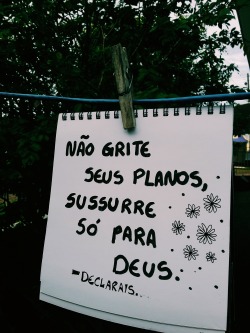 NÃO GRITE
SEUS PLANOS,
SUSSURRE
SÓ PARA
DEUS.
-DECLARAIS...